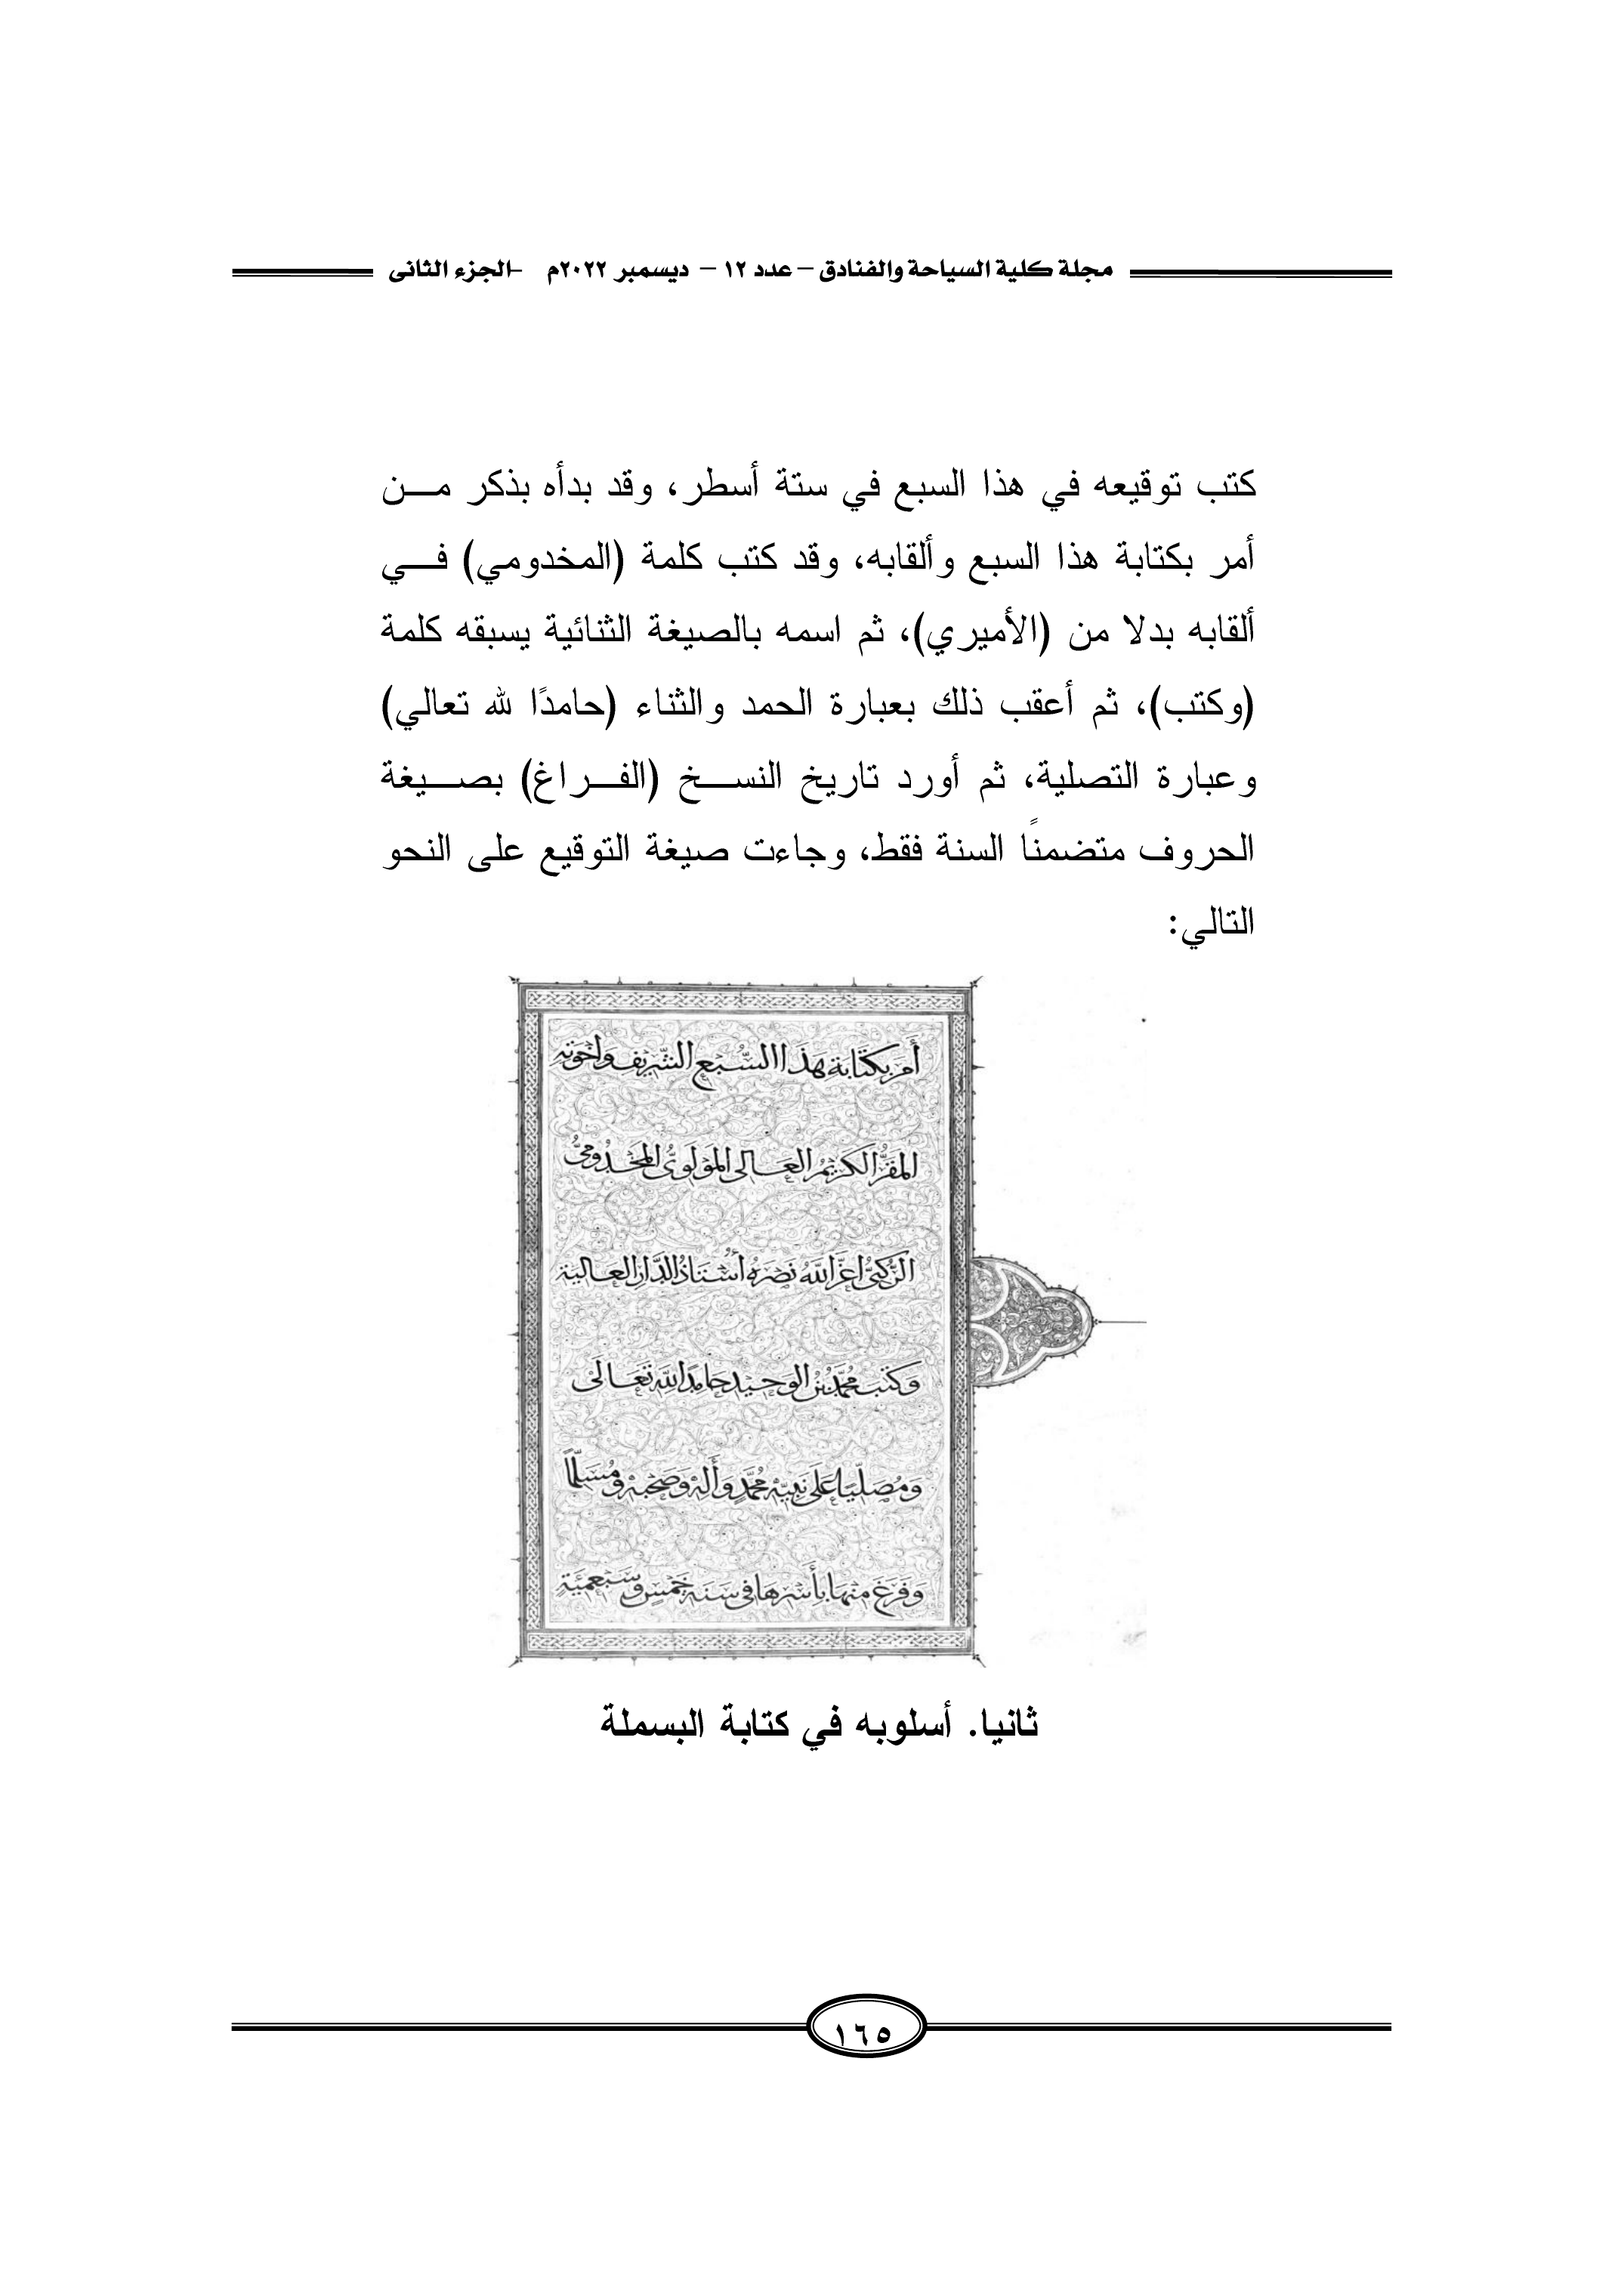 مجلة كلية السياحة والفنادق – عدد ١٢ – ديسمبر ٢٠٢٢م -الجزء الثانى
كتب توقيعه في هذا السبع في ستة أسطر، وقد بدأه بذكر مـــن
أمر بكتابة هذا السبع وألقابه، وقد كتب كلمة (المخدومي) فـــي
ألقابه بدلا من (الأميري)، ثم اسمه بالصيغة الثنائية يسبقه كلمة
(وكتب)، ثم أعقب ذلك بعبارة الحمد والثناء (حامدًا لله تعالي)
وعبارة التصلية، ثم أورد تاريخ النســـخ (الفـــراغ) بصـــيغة
الحروف متضمنًا السنة فقط، وجاءت صيغة التوقيع على النحو
التالي:
أَمَرَ بِكتَابَةِ هَذَا السُّبْعِ الشَّرِيفِ وَاخوَتِهِ
المَقَرُّ الكَرِيْمُ العَالِى المَوْلَوِىُّ المَخْدُومِىُّ
الرُّكنىُّ اعَزَّ اللَّهُ نَصْرَهُ أُسْتَاذُ الدَّارِ العَالِيَةِ
وَكَتَبَ مُحَمَّدُ بْنُ الوَحِيْدِ حَامِدًا للَّهِ تَعَالَى
وَمُصَلِّيًا عَلَى نَبِيِّهِ مُحَمَّدٍ وَأَلِهِ وَصَحْبِهِ وَمُسَلِّمًا
وَفَرَغَ مِنْهَا بِأَسْرِهَا فى سَنَةِ خَمْسٍ وَسَبْعِمِئَةٍ
ثانيا. أسلوبه في كتابة البسملة
١٦٥